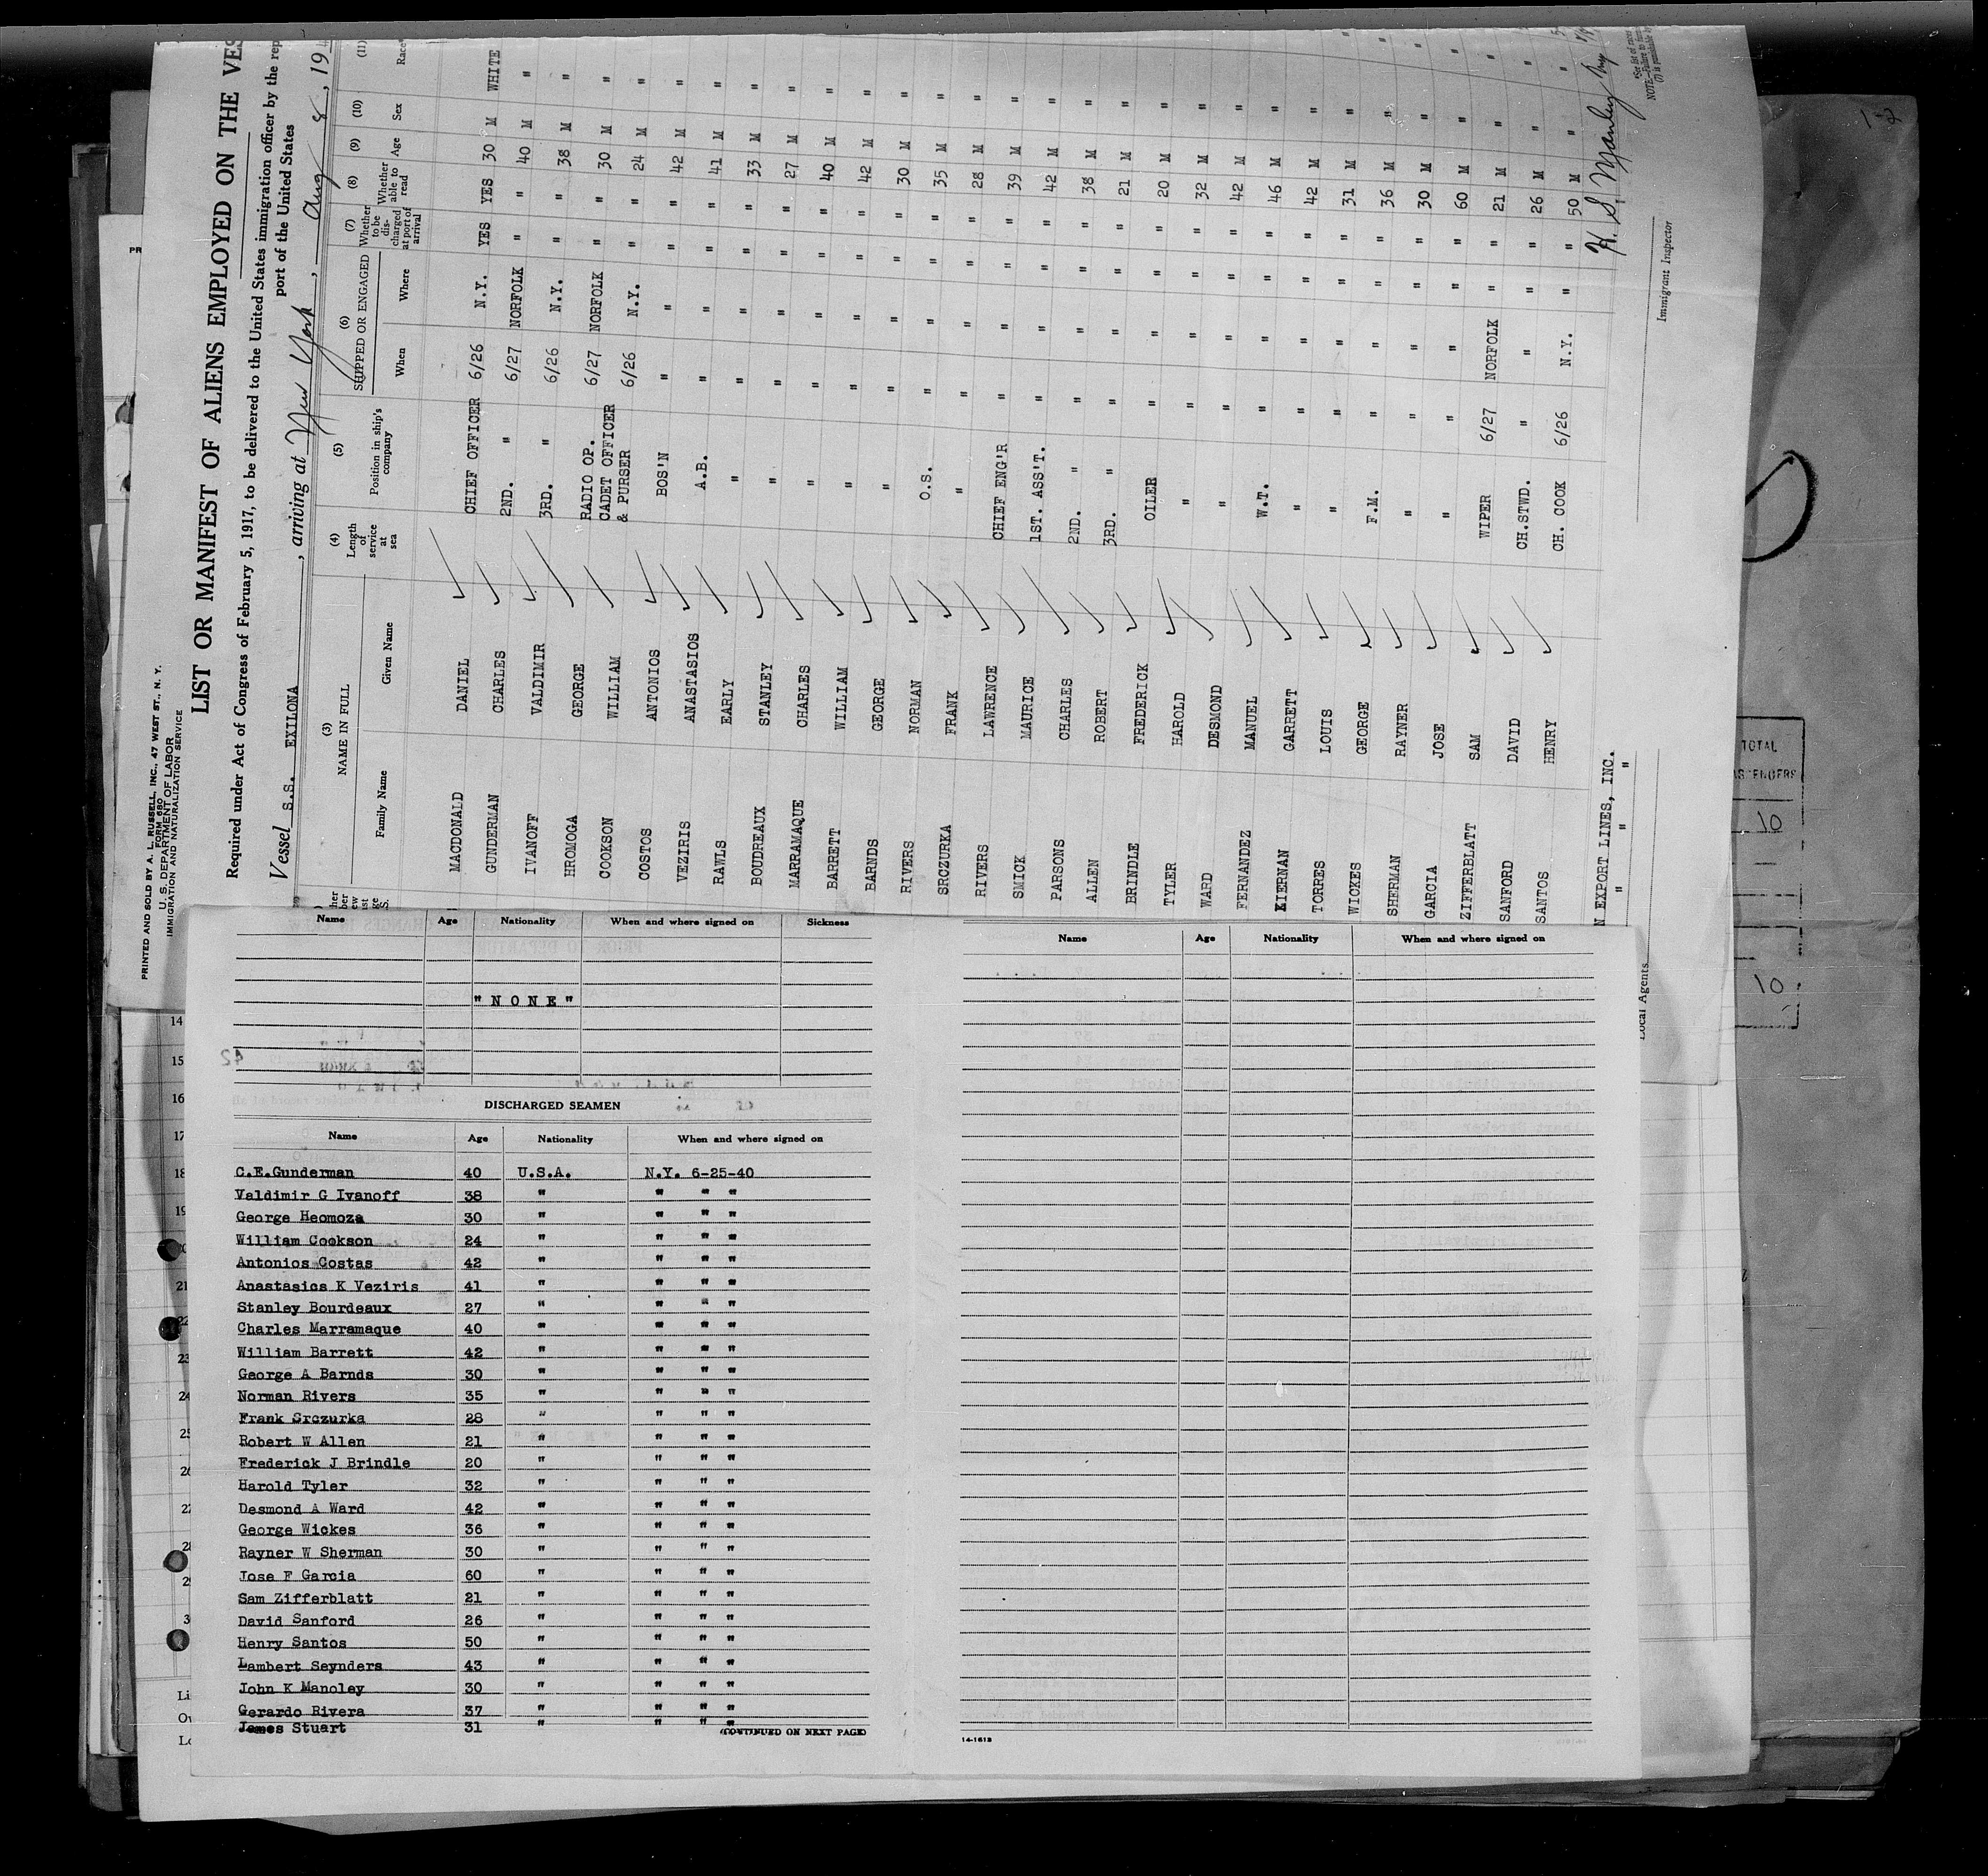 PRINTED AND SOLD BY A. L. RUSSELL, INC., 47 WEST ST., N. Y.
FORM 680
U. S. DEPARTMENT OF LABOR
IMMIGRATION AND NATURALIZATION SERVICE
LIST OR MANIFEST OF ALIENS EMPLOYED ON THE VES
Required under Act of Congress of February 5, 1917, to be delivered to the United States immigration officer by the rep
port of the United States
Vessel S.S. EXILONA, arriving at New York, Aug 8, 19
(3) (4) (5) (6) (7) (8) (9) (10) (11)
NAME IN FULL Length of service at sea Position in ship's company SHIPPED OR ENGAGED Whether to be discharged at port of arrival Whether able to read Age Sex Race
Family Name Given Name When Where
MACDONALD DANIEL CHIEF OFFICER 6/26 N.Y. YES YES 30 M WHITE
GUNDERMAN CHARLES 2ND. " 6/27 NORFOLK " " 40 M "
IVANOFF VALDIMIR 3RD. " 6/26 N.Y. " " 38 M "
HROMOGA GEORGE RADIO OP. 6/27 NORFOLK " " 30 M "
COOKSON WILLIAM CADET OFFICER & PURSER 6/26 N.Y. " " 24 M "
COSTOS ANTONIOS BOS'N " " " " 42 M "
VEZIRIS ANASTASIOS A.B. " " " " 41 M "
RAWLS EARLY " " " " " 33 M "
BOUDREAUX STANLEY " " " " " 27 M "
MARRAMAQUE CHARLES " " " " " 40 M "
BARRETT WILLIAM " " " " " 42 M "
BARNDS GEORGE " " " " " 30 M "
RIVERS NORMAN O.S. " " " " 35 M "
SRCZURKA FRANK " " " " " 28 M "
RIVERS LAWRENCE CHIEF ENG'R " " " " 39 M "
SMICK MAURICE 1ST. ASS'T. " " " " 42 M "
PARSONS CHARLES 2ND. " " " " " 38 M "
ALLEN ROBERT 3RD. " " " " " 21 M "
BRINDLE FREDERICK OILER " " " " 20 M "
TYLER HAROLD " " " " " 32 M "
WARD DESMOND " " " " " 42 M "
FERNANDEZ MANUEL W.T. " " " " 46 M "
KIERNAN GARRETT " " " " " 42 M "
TORRES LOUIS " " " " " 31 M "
WICKES GEORGE F.M. " " " " 36 M "
SHERMAN RAYNER " " " " " 30 M "
GARCIA JOSE " " " " " 60 M "
ZIFFERBLATT SAM WIPER 6/27 NORFOLK " " 21 M "
SANFORD DAVID CH.STWD. " " " " 26 M "
SANTOS HENRY CH. COOK 6/26 N.Y. " " 50 M "
N EXPORT LINES, INC.
" " "
Local Agents
H. S. Manley
Immigrant Inspector
TOTAL
10
10
Name Age Nationality When and where signed on Sickness
"NONE"
DISCHARGED SEAMEN
Name Age Nationality When and where signed on
C.E.Gunderman 40 U.S.A. N.Y. 6-25-40
Valdimir G Ivanoff 38 " " " "
George Heomoza 30 " " " "
William Cookson 24 " " " "
Antonios Costas 42 " " " "
Anastasics K Veziris 41 " " " "
Stanley Bourdeaux 27 " " " "
Charles Marramaque 40 " " " "
William Barrett 42 " " " "
George A Barnds 30 " " " "
Norman Rivers 35 " " " "
Frank Srczurka 28 " " " "
Robert W Allen 21 " " " "
Frederick J Brindle 20 " " " "
Harold Tyler 32 " " " "
Desmond A Ward 42 " " " "
George Wickes 36 " " " "
Rayner W Sherman 30 " " " "
Jose F Garcia 60 " " " "
Sam Zifferblatt 21 " " " "
David Sanford 26 " " " "
Henry Santos 50 " " " "
Lambert Seynders 43 " " " "
John K Manoley 30 " " " "
Gerardo Rivera 37 " " " "
James Stuart 31 " " " "
(CONTINUED ON NEXT PAGE)
Name Age Nationality When and where signed on
14-1613
14
15
16
17
18
19
21
22
23
24